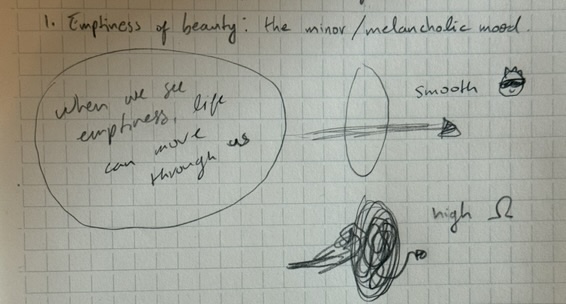 1. Emptiness of beauty: the minor/melancholic mood.
when we see
emptiness, life
can move
through us
smooth
high Ω